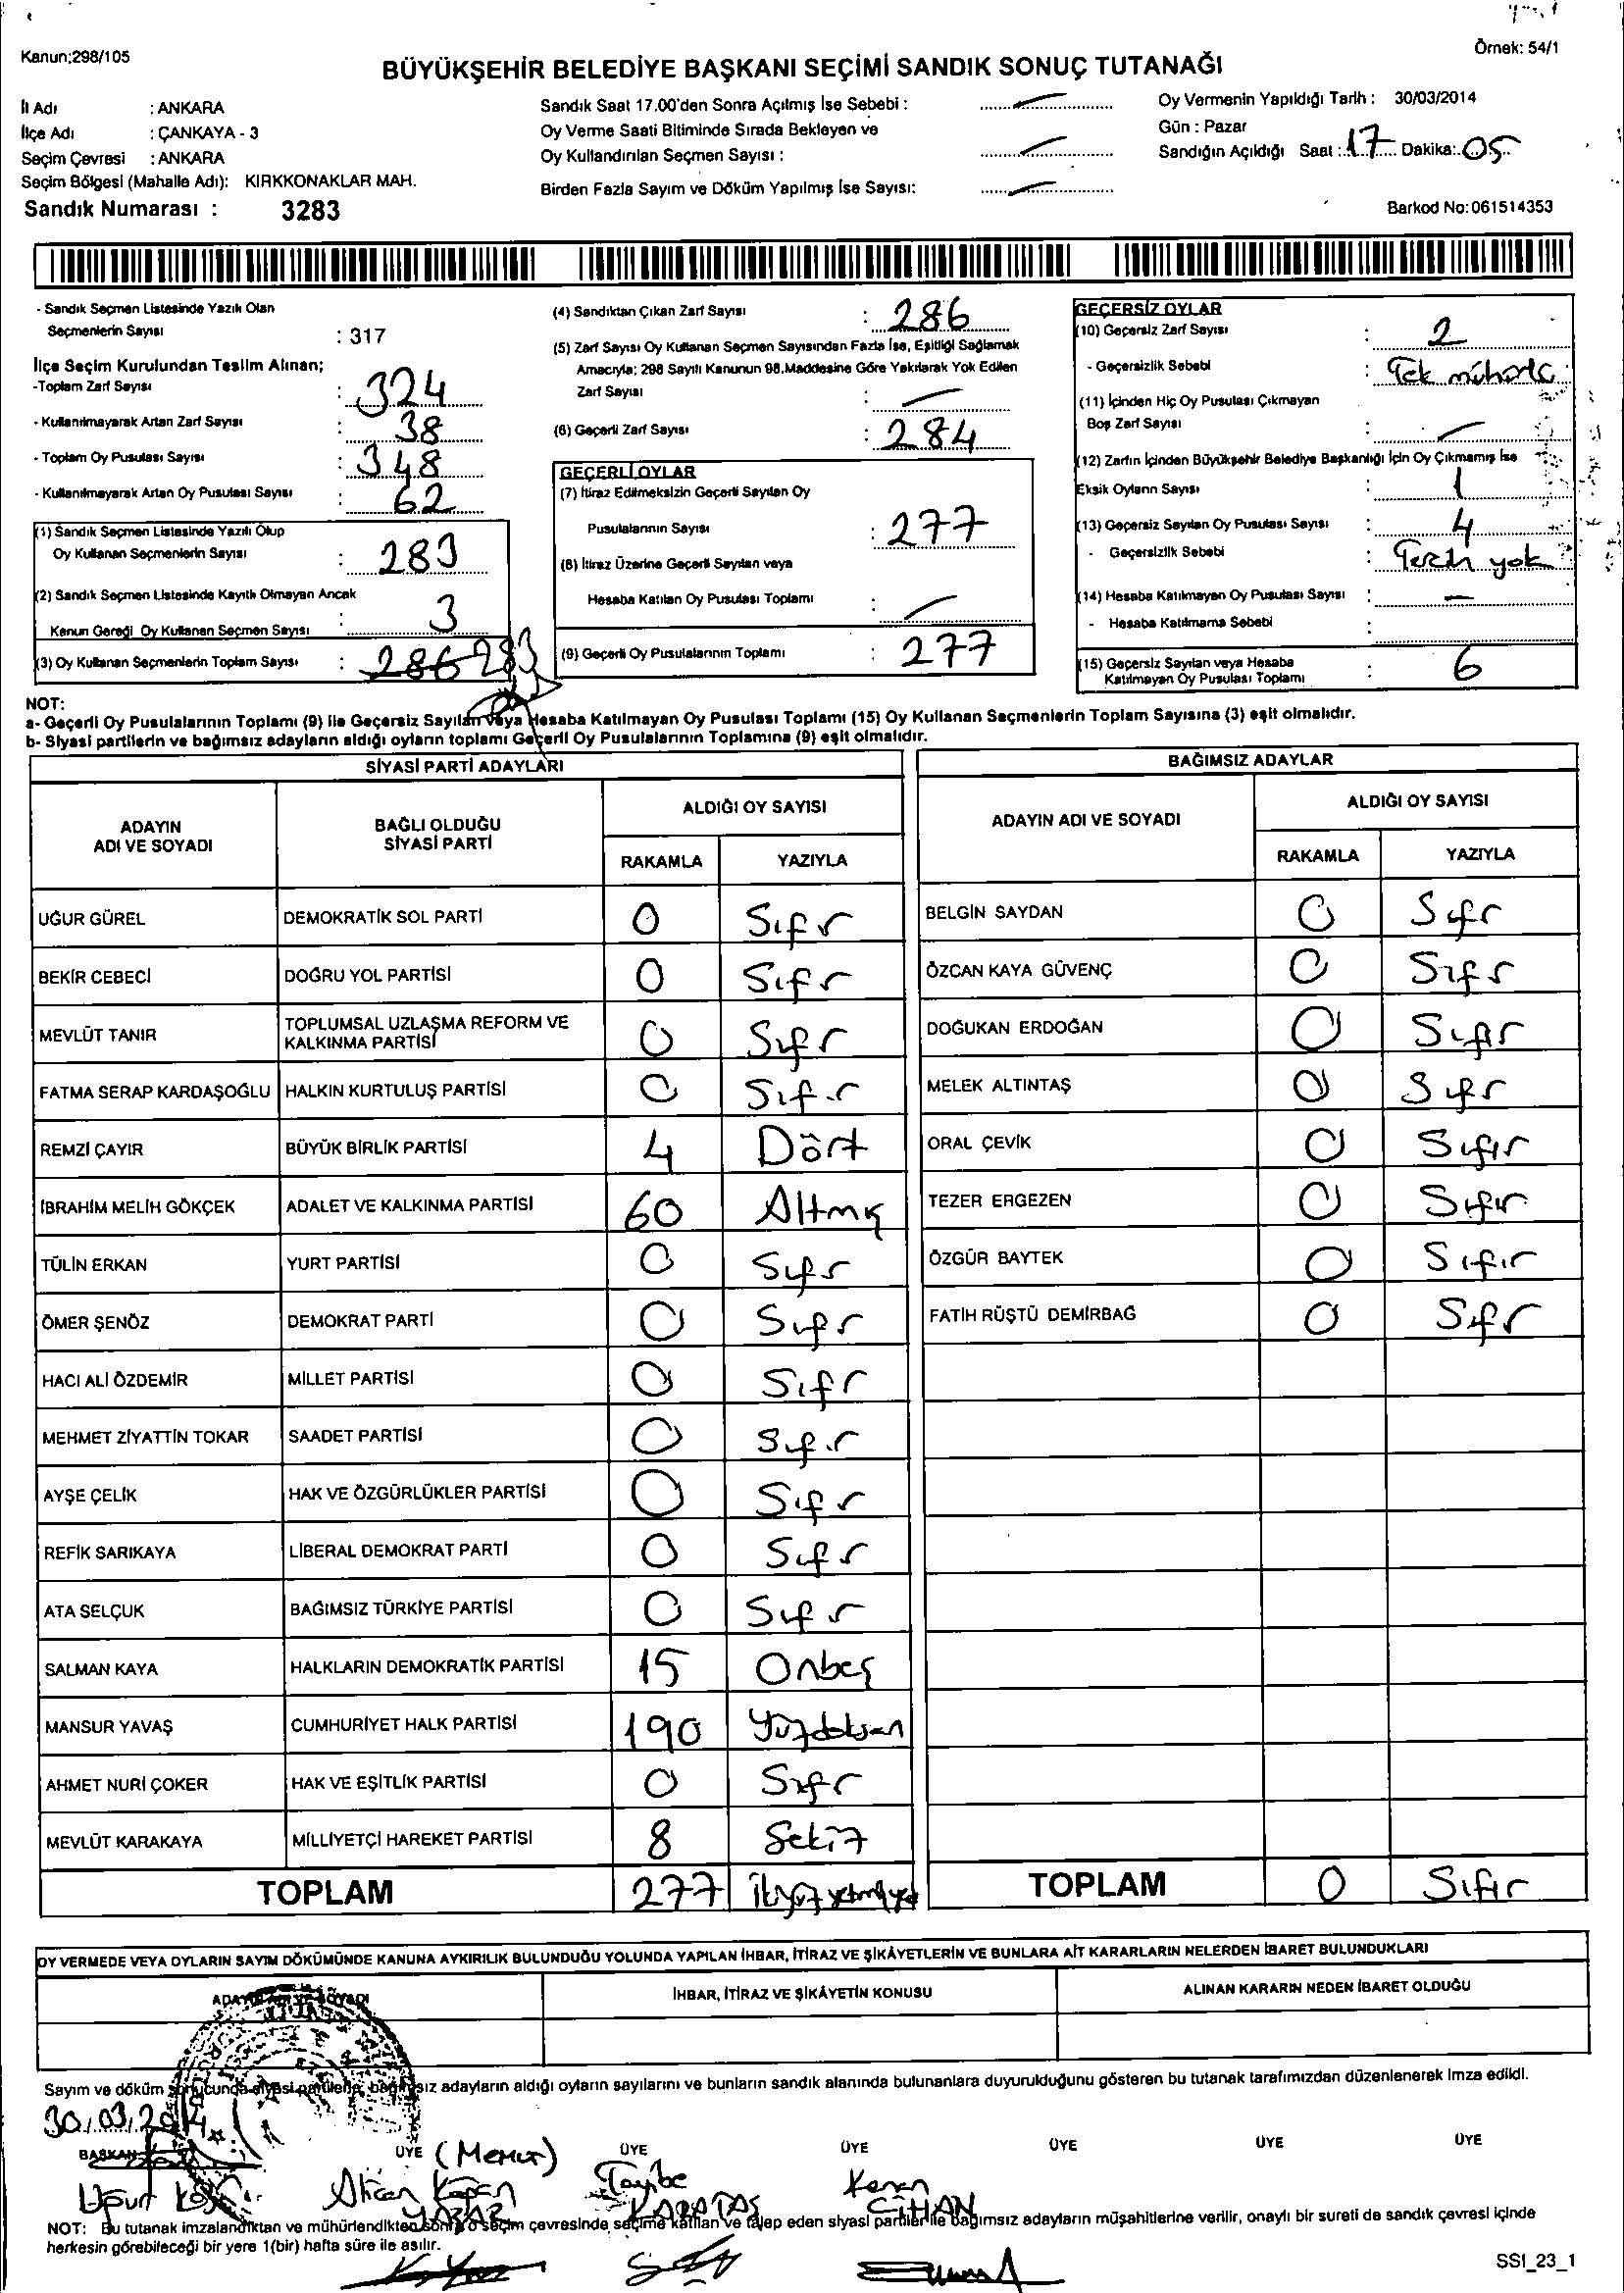 Kanun:298/105
Örnek: 54/1
BÜYÜKŞEHİR BELEDİYE BAŞKANI SEÇİMİ SANDIK SONUÇ TUTANAĞI
İl Adı : ANKARA
İlçe Adı : ÇANKAYA - 3
Seçim Çevresi : ANKARA
Seçim Bölgesi (Mahalle Adı): KIRKKONAKLAR MAH.
Sandık Numarası : 3283
Sandık Saat 17.00'den Sonra Açılmış İse Sebebi :
Oy Verme Saati Bitiminde Sırada Bekleyen ve
Oy Kullandırılan Seçmen Sayısı :
Birden Fazla Sayım ve Döküm Yapılmış İse Sayısı:
Oy Vermenin Yapıldığı Tarih : 30/03/2014
Gün : Pazar
Sandığın Açıldığı Saat : 17 Dakika: 05
Barkod No:061514353
- Sandık Seçmen Listesinde Yazılı Olan
Seçmenlerin Sayısı : 317
İlçe Seçim Kurulundan Teslim Alınan;
-Toplam Zarf Sayısı : 324
- Kullanılmayarak Artan Zarf Sayısı : 38
- Toplam Oy Pusulası Sayısı : 348
- Kullanılmayarak Artan Oy Pusulası Sayısı : 62
(1) Sandık Seçmen Listesinde Yazılı Olup
Oy Kullanan Seçmenlerin Sayısı : 283
(2) Sandık Seçmen Listesinde Kayıtlı Olmayan Ancak
Kanun Gereği Oy Kullanan Seçmen Sayısı : 3
(3) Oy Kullanan Seçmenlerin Toplam Sayısı : 286 283
(4) Sandıktan Çıkan Zarf Sayısı : 286
(5) Zarf Sayısı Oy Kullanan Seçmen Sayısından Fazla İse, Eşitliği Sağlamak
Amacıyla; 298 Sayılı Kanunun 98.Maddesine Göre Yakılarak Yok Edilen
Zarf Sayısı :
(6) Geçerli Zarf Sayısı : 284
GEÇERLİ OYLAR
(7) İtiraz Edilmeksizin Geçerli Sayılan Oy
Pusulalarının Sayısı : 277
(8) İtiraz Üzerine Geçerli Sayılan veya
Hesaba Katılan Oy Pusulası Toplamı :
(9) Geçerli Oy Pusulalarının Toplamı : 277
GEÇERSİZ OYLAR
(10) Geçersiz Zarf Sayısı : 2
- Geçersizlik Sebebi : Tek
(11) İçinden Hiç Oy Pusulası Çıkmayan
Boş Zarf Sayısı :
(12) Zarfın İçinden Büyükşehir Belediye Başkanlığı İçin Oy Çıkmamış İse
Eksik Oyların Sayısı : 1
(13) Geçersiz Sayılan Oy Pusulası Sayısı : 4
- Geçersizlik Sebebi : Tercih yok
(14) Hesaba Katılmayan Oy Pusulası Sayısı : -
- Hesaba Katılmama Sebebi :
(15) Geçersiz Sayılan veya Hesaba
Katılmayan Oy Pusulası Toplamı : 6
NOT:
a- Geçerli Oy Pusulalarının Toplamı (9) ile Geçersiz Sayılan veya Hesaba Katılmayan Oy Pusulası Toplamı (15) Oy Kullanan Seçmenlerin Toplam Sayısına (3) eşit olmalıdır.
b- Siyasi partilerin ve bağımsız adayların aldığı oyların toplamı Geçerli Oy Pusulalarının Toplamına (9) eşit olmalıdır.
SİYASİ PARTİ ADAYLARI
ADAYIN ADI VE SOYADI BAĞLI OLDUĞU SİYASİ PARTİ ALDIĞI OY SAYISI RAKAMLA YAZIYLA
UĞUR GÜREL DEMOKRATİK SOL PARTİ 0 Sıfır
BEKİR CEBECİ DOĞRU YOL PARTİSİ 0 Sıfır
MEVLÜT TANIR TOPLUMSAL UZLAŞMA REFORM VE KALKINMA PARTİSİ 0 Sıfır
FATMA SERAP KARDAŞOĞLU HALKIN KURTULUŞ PARTİSİ 0 Sıfır
REMZİ ÇAYIR BÜYÜK BİRLİK PARTİSİ 4 Dört
İBRAHİM MELİH GÖKÇEK ADALET VE KALKINMA PARTİSİ 60 Altmış
TÜLİN ERKAN YURT PARTİSİ 0 Sıfır
ÖMER ŞENÖZ DEMOKRAT PARTİ 0 Sıfır
HACI ALİ ÖZDEMİR MİLLET PARTİSİ 0 Sıfır
MEHMET ZİYATTİN TOKAR SAADET PARTİSİ 0 Sıfır
AYŞE ÇELİK HAK VE ÖZGÜRLÜKLER PARTİSİ 0 Sıfır
REFİK SARIKAYA LİBERAL DEMOKRAT PARTİ 0 Sıfır
ATA SELÇUK BAĞIMSIZ TÜRKİYE PARTİSİ 0 Sıfır
SALMAN KAYA HALKLARIN DEMOKRATİK PARTİSİ 15 Onbeş
MANSUR YAVAŞ CUMHURİYET HALK PARTİSİ 190 Yüzdoksan
AHMET NURİ ÇOKER HAK VE EŞİTLİK PARTİSİ 0 Sıfır
MEVLÜT KARAKAYA MİLLİYETÇİ HAREKET PARTİSİ 8 Sekiz
TOPLAM 277 ikiyüzyetmişyedi
BAĞIMSIZ ADAYLAR
ADAYIN ADI VE SOYADI ALDIĞI OY SAYISI RAKAMLA YAZIYLA
BELGİN SAYDAN 0 Sıfır
ÖZCAN KAYA GÜVENÇ 0 Sıfır
DOĞUKAN ERDOĞAN 0 Sıfır
MELEK ALTINTAŞ 0 Sıfır
ORAL ÇEVİK 0 Sıfır
TEZER ERGEZEN 0 Sıfır
ÖZGÜR BAYTEK 0 Sıfır
FATİH RÜŞTÜ DEMİRBAĞ 0 Sıfır
TOPLAM 0 Sıfır
OY VERMEDE VEYA OYLARIN SAYIM DÖKÜMÜNDE KANUNA AYKIRILIK BULUNDUĞU YOLUNDA YAPILAN İHBAR, İTİRAZ VE ŞİKÂYETLERİN VE BUNLARA AİT KARARLARIN NELERDEN İBARET BULUNDUKLARI
ADAYIN ADI VE SOYADI İHBAR, İTİRAZ VE ŞİKÂYETİN KONUSU ALINAN KARARIN NEDEN İBARET OLDUĞU
Sayım ve döküm sonucunda siyasi partilerle, bağımsız adayların aldığı oyların sayılarını ve bunların sandık alanında bulunanlara duyurulduğunu gösteren bu tutanak tarafımızdan düzenlenerek imza edildi.
30.03.2014
BAŞKAN ÜYE (Memur) ÜYE ÜYE ÜYE ÜYE ÜYE
Tayibe Kenan
KARATAŞ CİHAN
NOT: Bu tutanak imzalandıktan ve mühürlendikten sonra o seçim çevresinde seçime katılan ve talep eden siyasi partiler ile bağımsız adayların müşahitlerine verilir, onaylı bir sureti de sandık çevresi içinde
herkesin görebileceği bir yere 1(bir) hafta süre ile asılır.
SSI_23_1